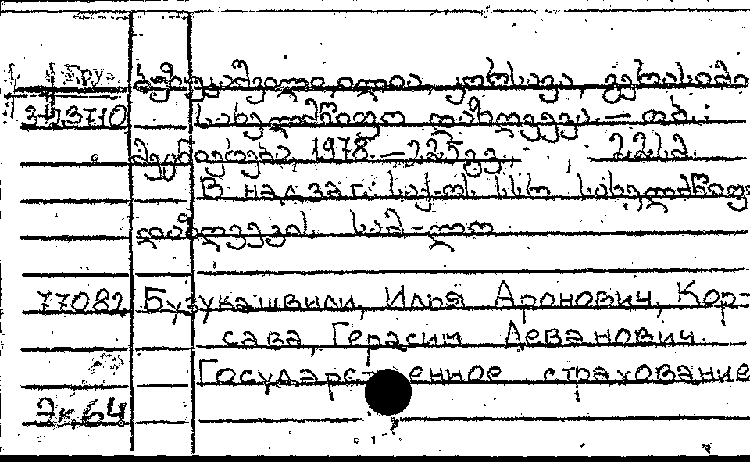 Гру.
ბუზუკაშვილი, ილია, კორსავა, გერასიმე
3-23710 სახელმწიფო დაზღვევა. — თბ.:
მეცნიერება 1978. — 225 გვ. 22 სმ.
В надзаг.: საქ-ოს სსრ სახელმწიფო
დაზღვევის სამ-ლო
77082 Бузукашвили, Илья Аронович, Кор-
сава, Герасим Леванович.
Государственное страхование
Эк.64